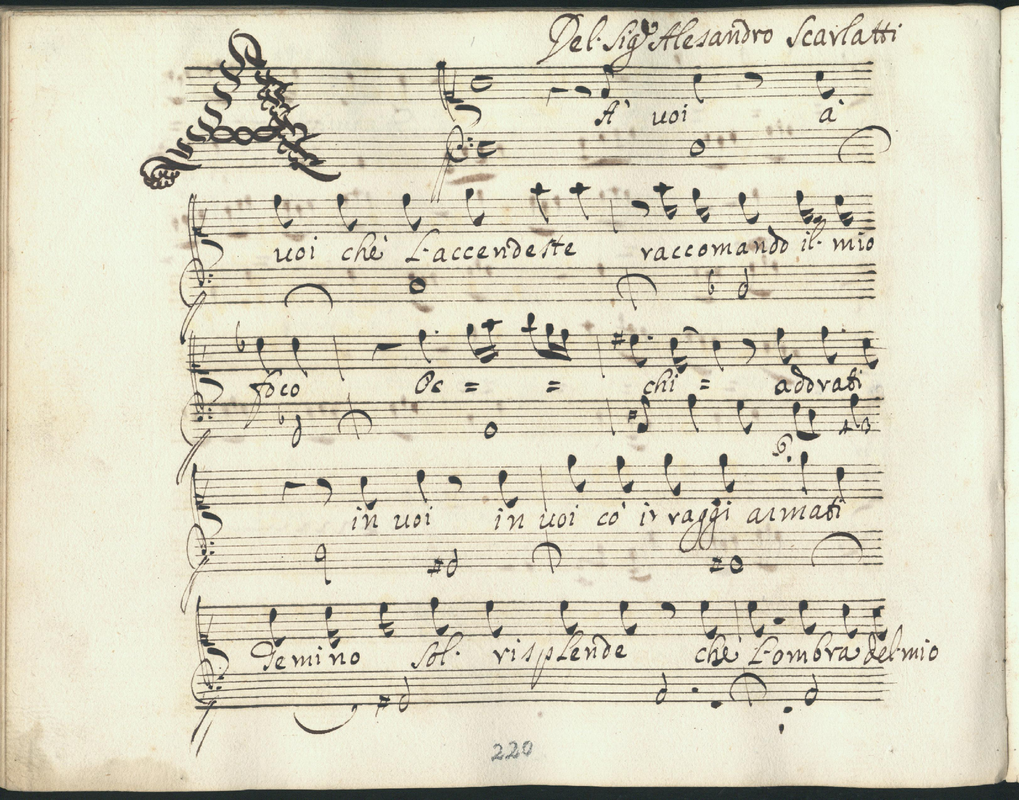 Del Sig.r Alesandro Scarlatti
A
A' voi à
uoi che L'accendeste raccomando il mio
foco Oc = = chi = adorati
6 4 3
in uoi in uoi co' i raggi armati
Temino sol risplende che L'ombra del mio
220